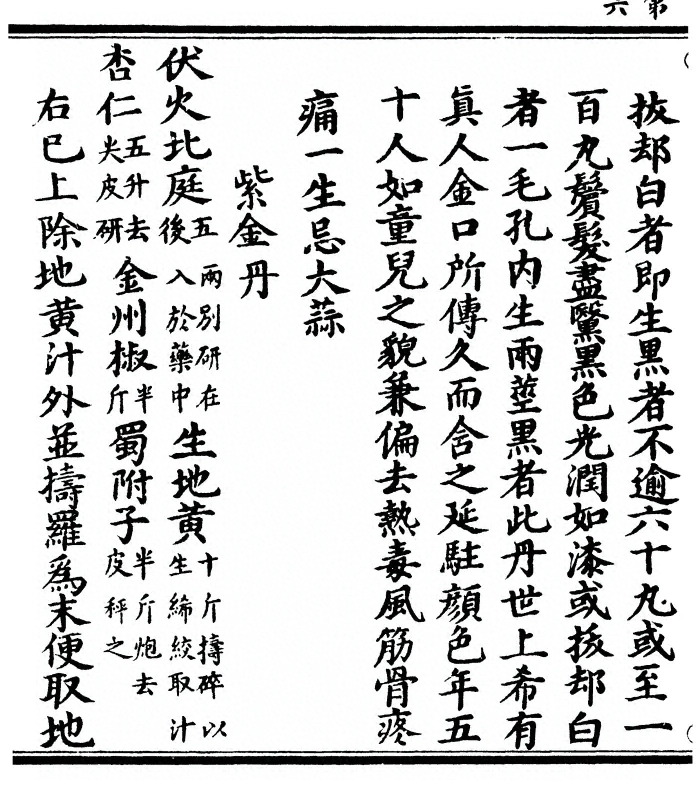 第六
拔却白者即生黒者不逾六十丸或至一
百丸鬢髮盡黳黒色光潤如漆或拔却白
者一毛孔内生兩莖黒者此丹世上希有
眞人金口所傳久而含之延駐顔色年五
十人如童兒之貌兼偏去熱毒風筋骨疼
痛一生忌大蒜
紫金丹
伏火北庭五兩别研在後入於藥中生地黄十斤擣碎以生絺絞取汁
杏仁五升去尖皮研金州椒半斤蜀附子半斤炮去皮秤之
右巳上除地黄汁外並擣羅爲末便取地